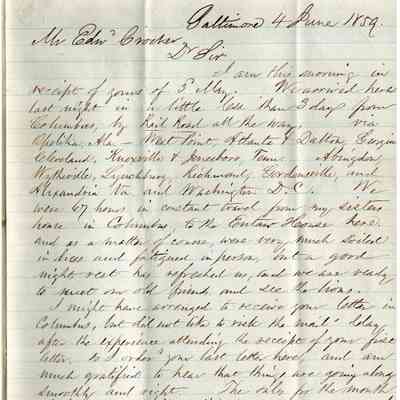 Baltimore 4 June 1859.
Mr Edwd Crocker,
Dr Sir
I am this morning in
receipt of yours of 3d May. We arrived here
last night in a little less than 3 days from
Columbus, by Rail Road all the way, via
Opelika, Ala - West Point, Atlanta & Dalton, Georgia
Cleveland, Knoxville & Jonesboro, Tenn. Abingdon,
Wytheville, Lynchburg, Richmond, Gordonsville, and
Alexandria Va and Washington D.C. We
were 67 hours in constant travel from my sisters
house in Columbus, to the Eutaw House here
and as a matter of course, were very much soiled
in dress and fatigued in person, but a good
night rest has refreshed us, and we are ready
to meet our old friends and see the lions.
I might have arranged to receive your letter in
Columbus, but did not like to risk the mail's delay
after the experience attending the receipt of your first
letter. So I order'd your last letter here, and am
much gratified to hear that things are going along
smoothly and right. The only for the month